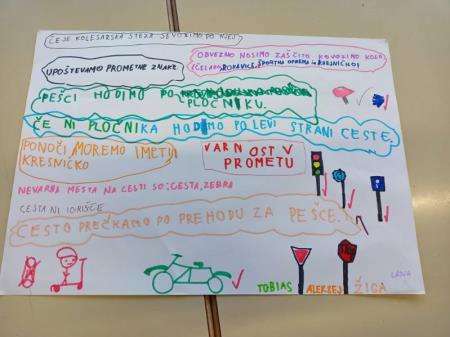 ČE JE KOLESARSKA STEZA SE VOZIMO PO NJEJ
OBVEZNO NOSIMO ZAŠČITO KO VOZIMO KOLO
(ČELADO, ROKAVICE, ŠPORTNA OPREMA in KRESNIČKO)
UPOŠTEVAMO PROMETNE ZNAKE.
PEŠCI HODIMO PO
PLOČNIKU.
ČE NI PLOČNIKA HODIMO PO LEVI STRANI CESTE.
PONOČI MOREMO IMETI
KRESNIČKO
VARNOST V
PROMETU
NEVARNA MESTA NA CESTI SO: CESTA, ZEBRA
CESTA NI IGRIŠČE
CESTO PREČKAMO PO PREHODU ZA PEŠCE.
LANA
TOBIAS ALEKSEJ ŽIGA